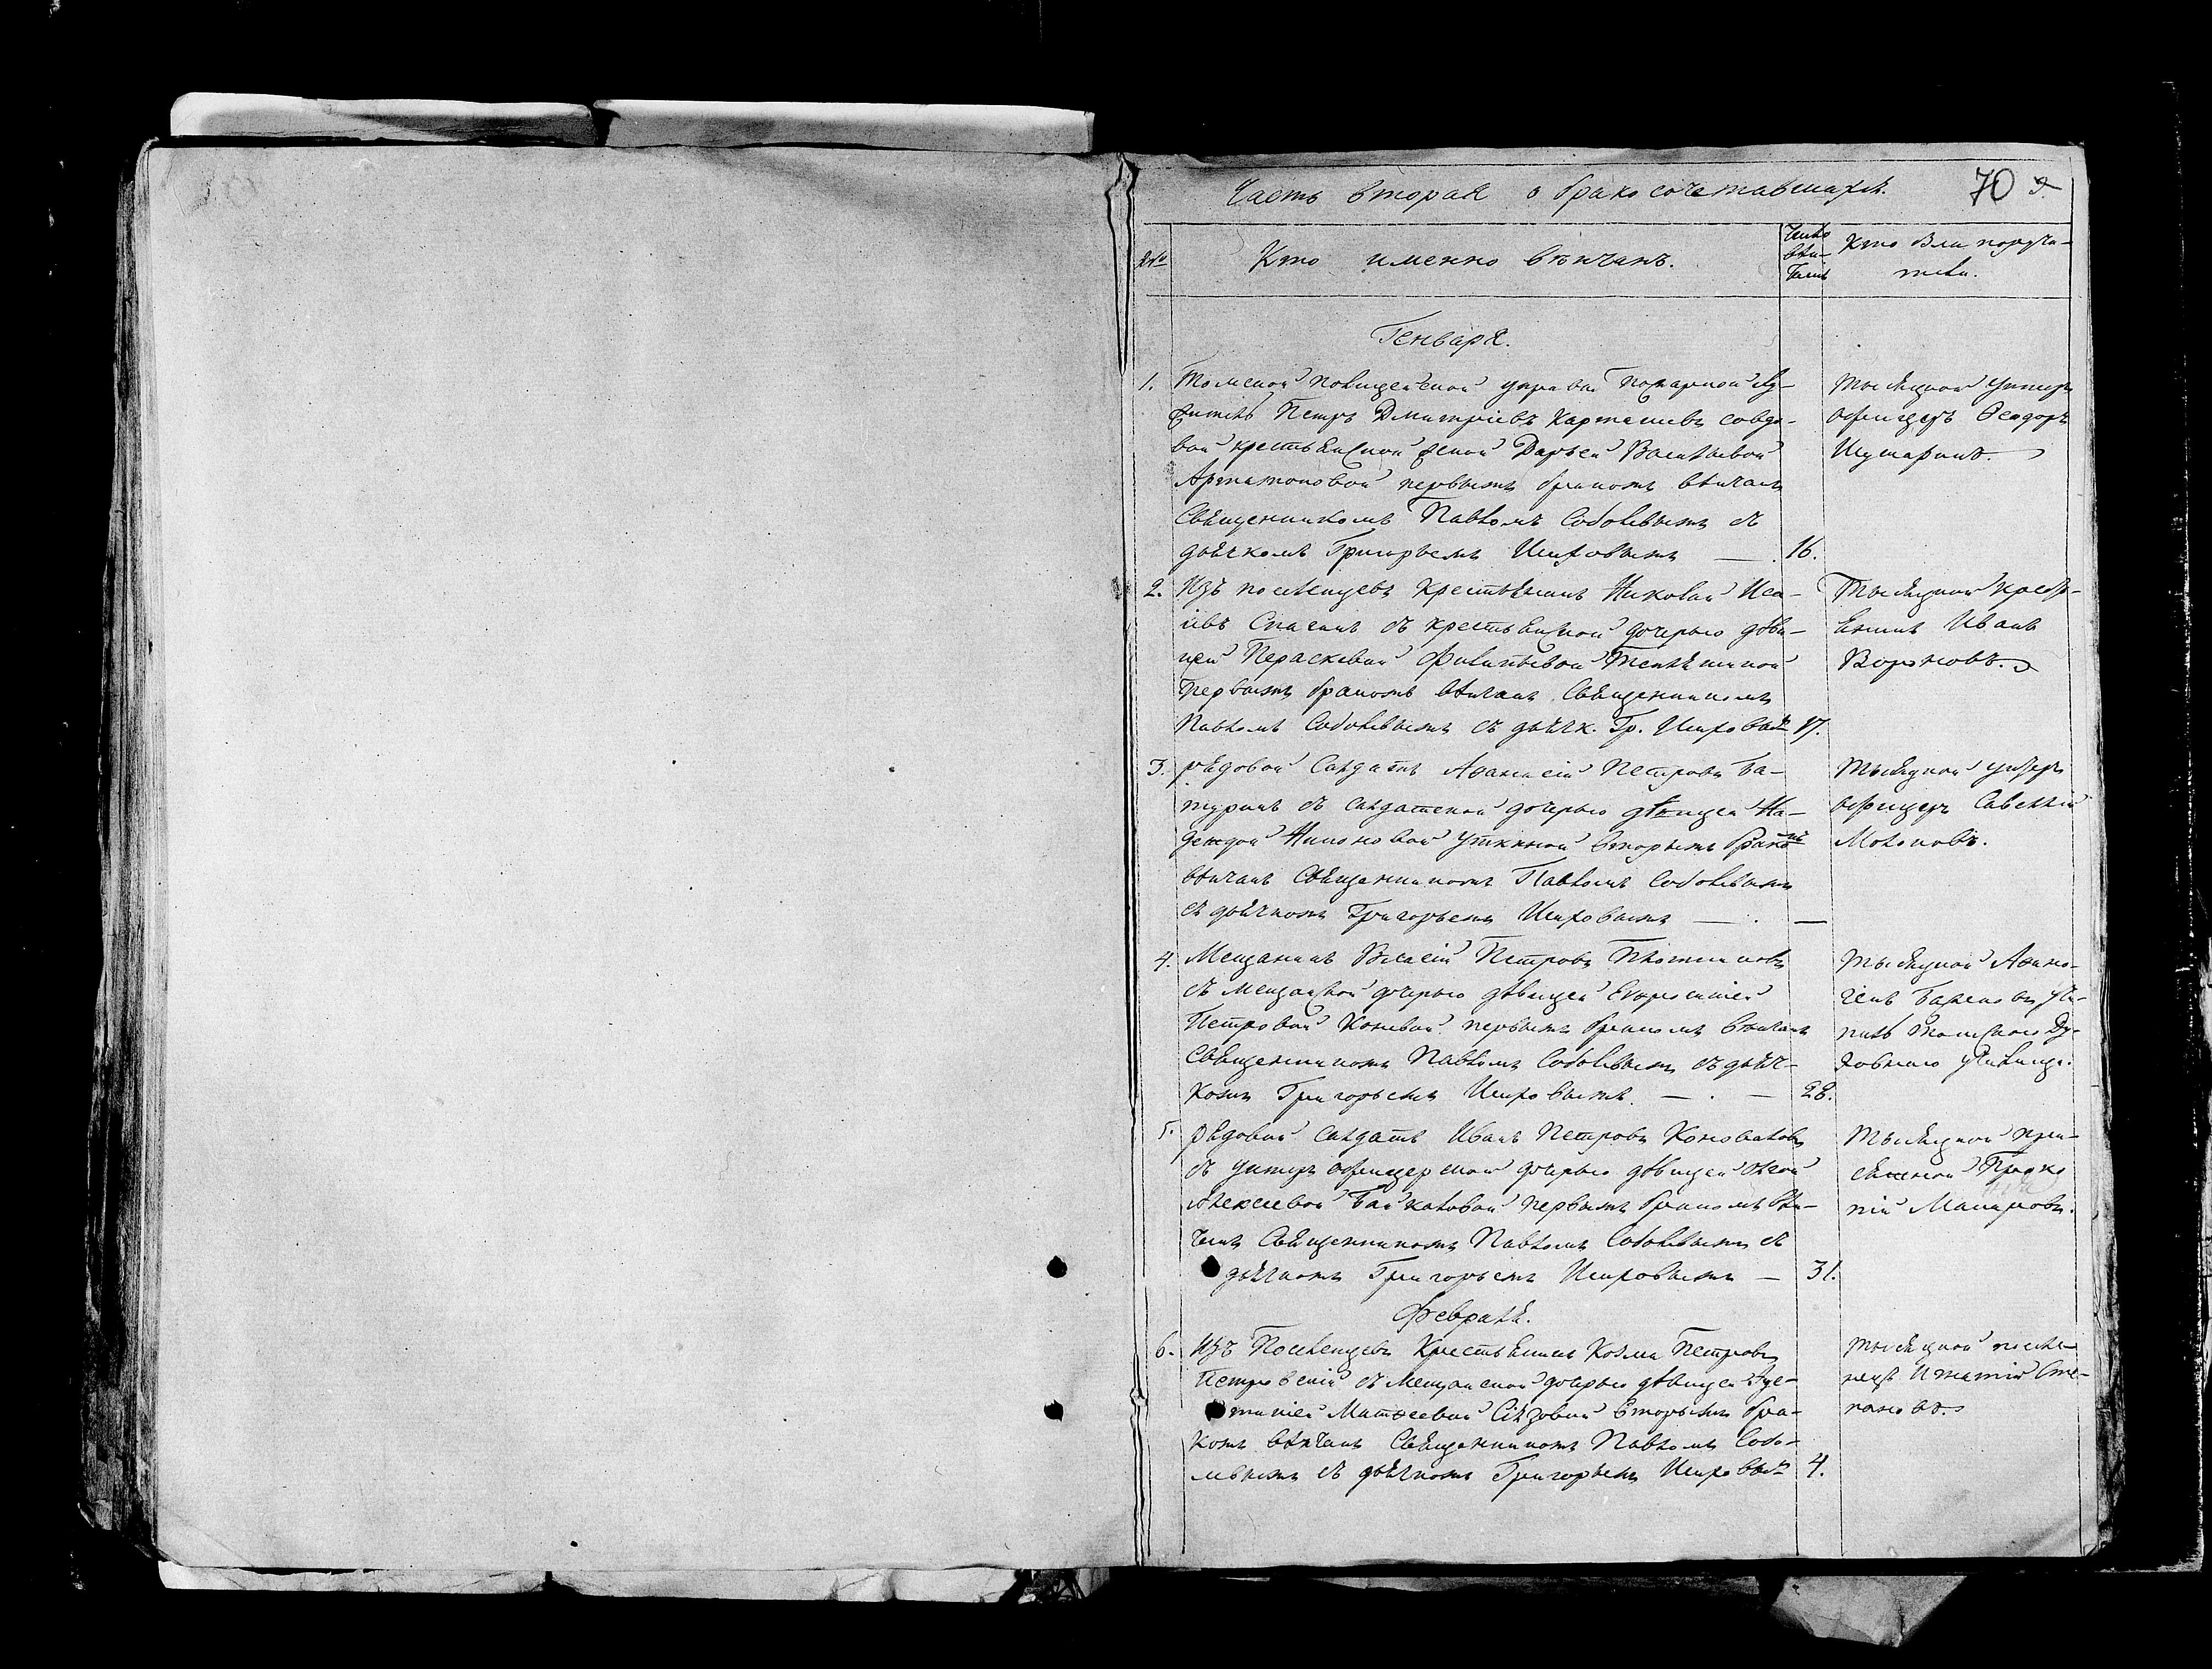 Часть вторая о бракосочетавшихся. 70
№ Кто именно вѣнчанъ. Число вѣн- Кто были поручи-
тели.
Генваря.
1. Томской полицейской управы пожарной слу-
житель Петръ Дмитріевъ Карташевъ со вдо-
вой крестьянской женой Дарьей Васильевой
Артамоновой первымъ бракомъ вѣнчанъ
Священникомъ Павломъ Соболевымъ съ
дьячкомъ Григорьемъ 16.
тысяцкой унтеръ
офицеръ Ѳеодоръ
2. Изъ поселенцевъ крестьянинъ Николай Иса-
іевъ Спасинъ съ крестьянской дочерью дѣви-
цей Параскевой Филиповой
первымъ бракомъ вѣнчанъ Священникомъ
Павломъ Соболевымъ съ дьячк. Гр. 17.
Тысяцкой крест-
янинъ Иванъ
Вороновъ.
3. рядовой Солдатъ Аѳанасій Петровъ Ба-
туринъ съ солдатской дочерью дѣвицей На-
деждой Уткиной вторымъ бракомъ
вѣнчанъ Священникомъ Павломъ Соболевымъ
съ дьячкомъ Григорьемъ — . —
Тысяцкой унтеръ
офицеръ Савелій
4. Мещанинъ Власій Петровъ Плотниковъ
съ мещанской дочерью дѣвицей Евфросиніей
Петровой Коневой первымъ бракомъ вѣнчанъ
Священникомъ Павломъ Соболевымъ съ дьяч-
комъ Григорьемъ — . — 28.
Тысяцкой Аѳино-
генъ Баженовъ уче-
никъ Томскаго Ду-
ховнаго училища.
5. рядовой солдатъ Иванъ Петровъ Коноваловъ
съ унтеръ офицерской дочерью дѣвицей
Алексеевой Байкаловой первымъ бракомъ вѣн-
чанъ Священникомъ Павломъ Соболевымъ съ
дьячкомъ Григорьемъ — 31.
Тысяцкой при-
сяжной Проко
пій Макаровъ.
Февраля.
6. Изъ Поселенцевъ Крестьянинъ Козма Петровъ
Петровскій съ мещанской дочерью дѣвицей Еус-
таѳіей Матѳеевой Сизовой вторымъ бра-
комъ вѣнчанъ Священникомъ Павломъ Собо-
левымъ съ дьячкомъ Григорьемъ 4.
тысяцкой поселе-
нецъ Игнатій Сте-
пановъ.